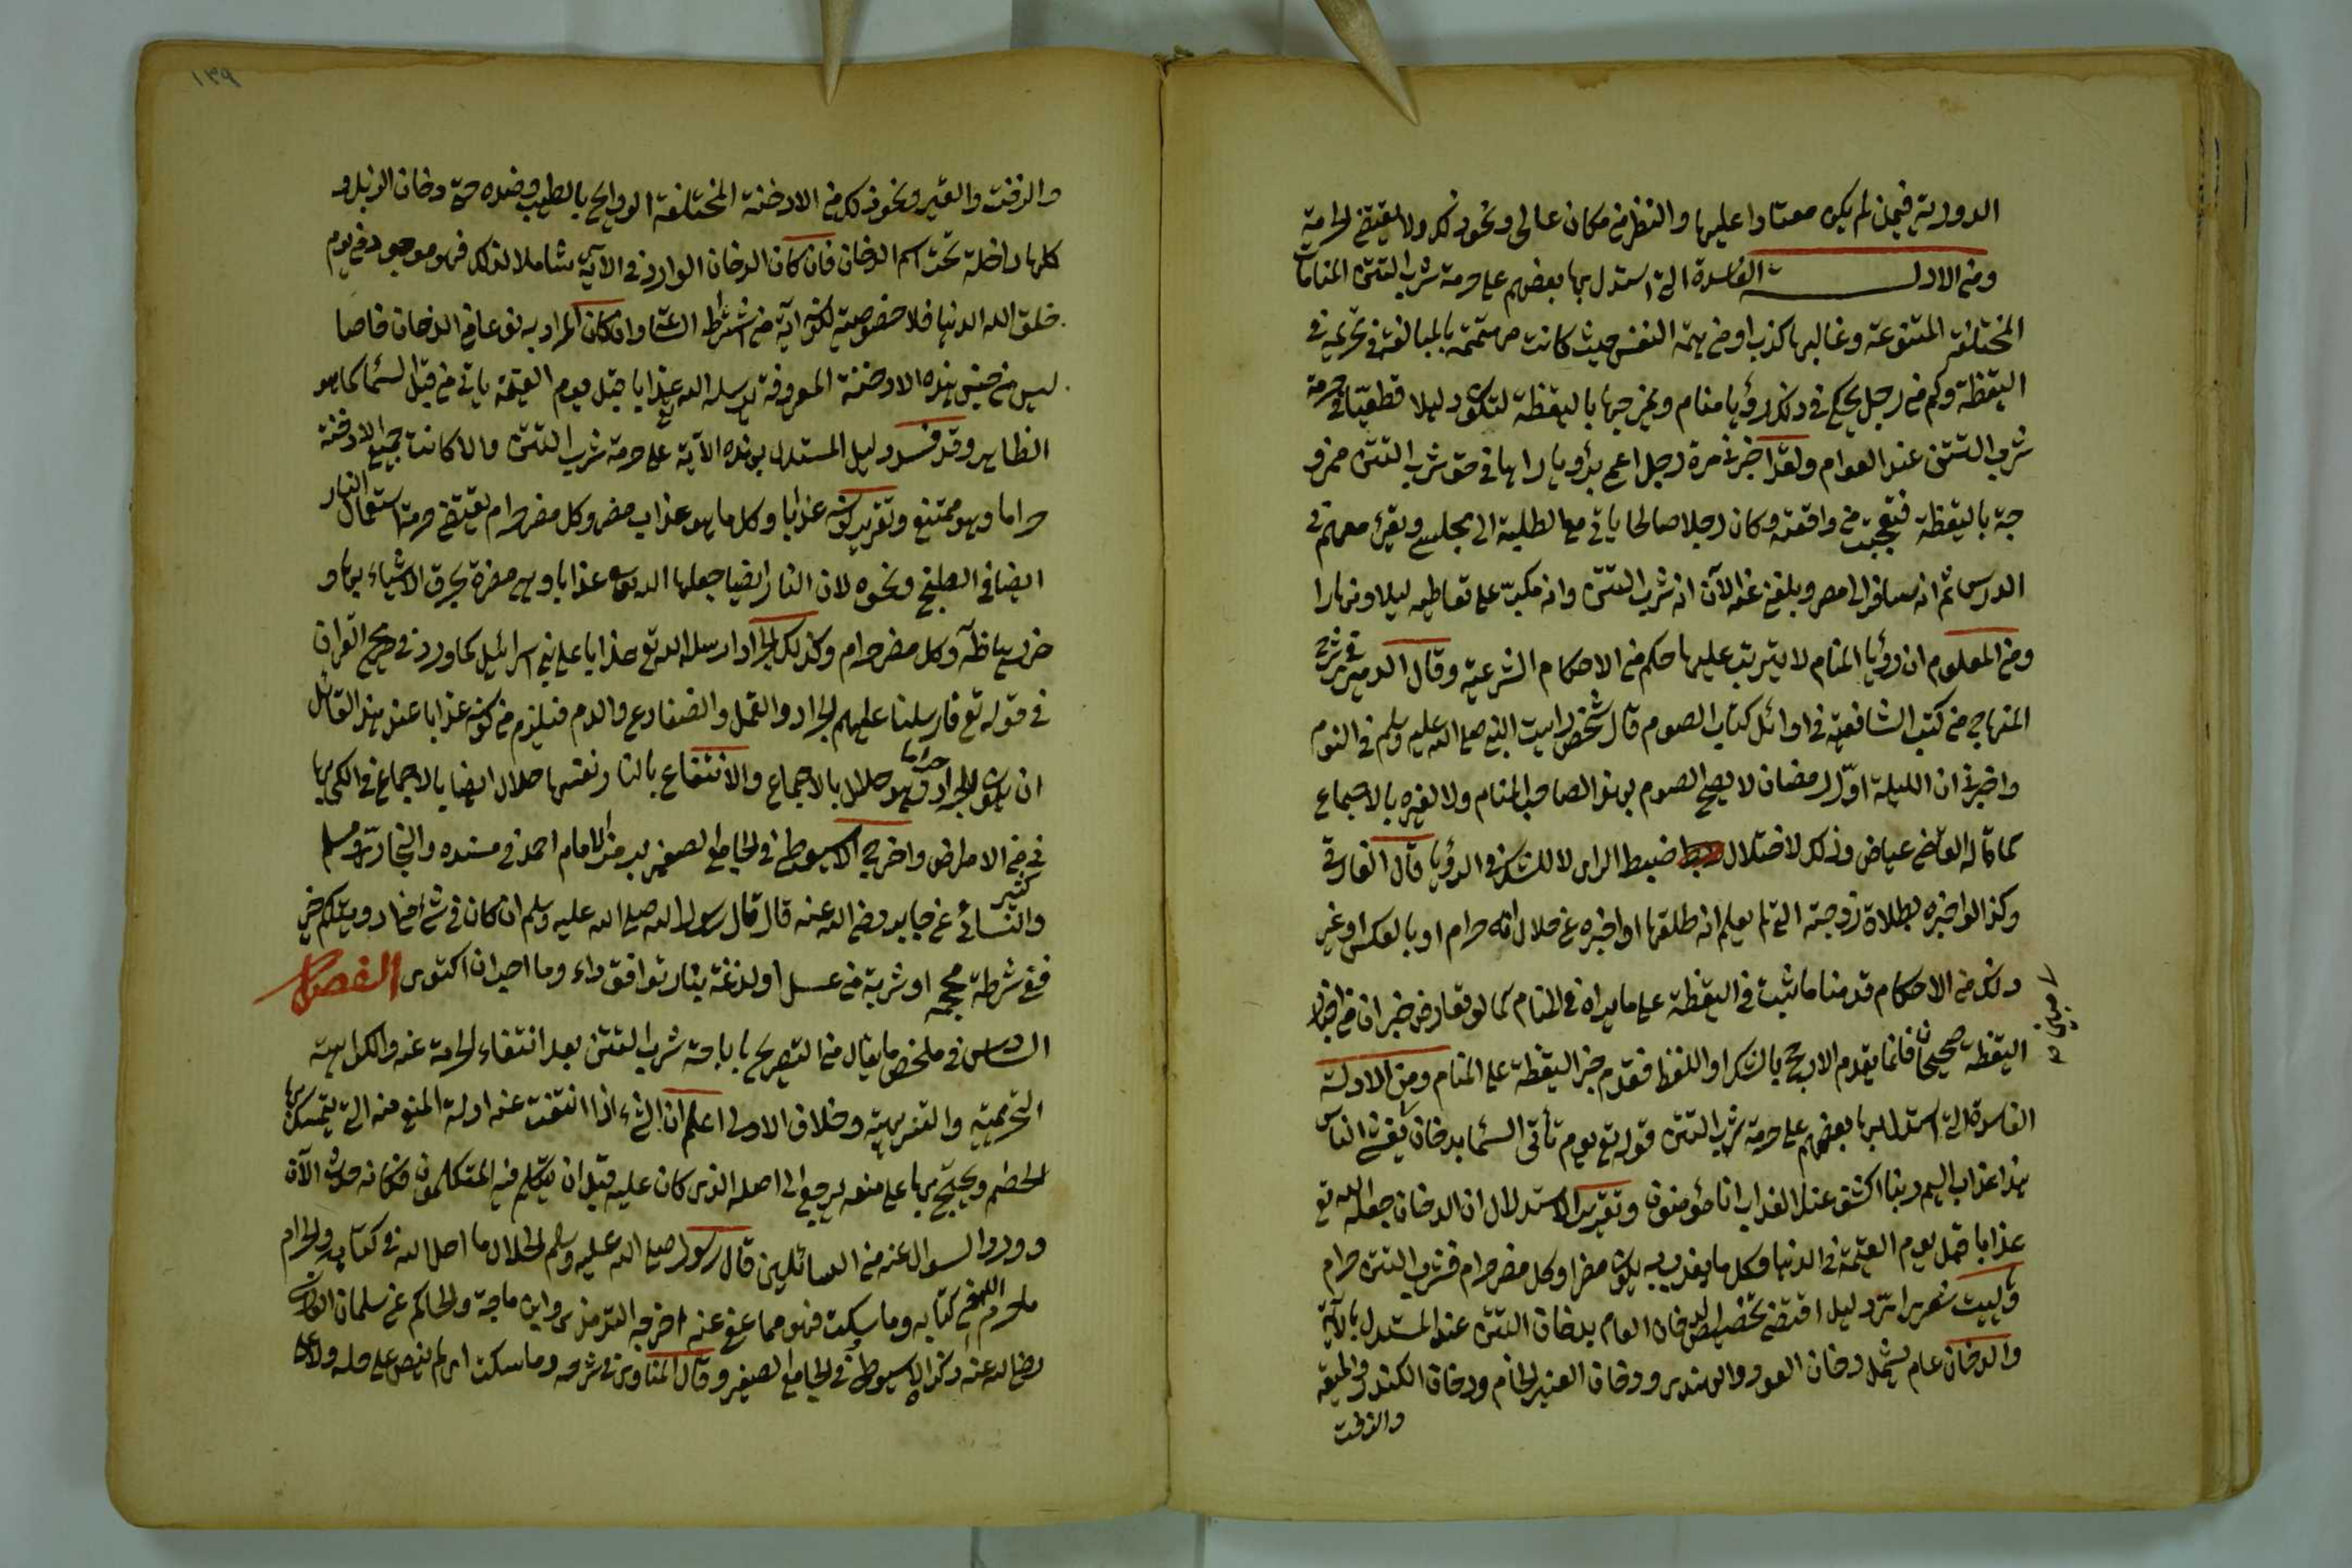 الدورية فيمن لم يكن معتادا عليها والنظر من مكان عالى ونحو ذلك ولا يقتضى الحرمة
ومن الادلة الفاسدة التى استدل بها بعضهم على حرمة شرب التتن المنامات
المختلفة المتنوعة وغالبها كذب او من همة النفس حيث كانت مهتمة بالمبالغة فى تحريمه فى
اليقظة وكم من رجل يحكى فى ذلك رؤيا منام ويمزجها باليقظة لتكون دليلا قطعيا فى حرمة
شرب التتن عند العوام ولقد اخبرنى مرة رجل اعمى برؤيا راها فى حق شرب التتن ممزو
جة باليقظة فتعجبت من واقعته وكان رجلا صالحا ياتى مع الطلبة الى مجلسى ويقرئ معهم فى
الدرس ثم انه سافر الى مصر وبلغنى عنه الآن انه شرب التتن وانه مكب على تعاطيه ليلا ونهارا
ومن المعلوم ان رؤيا المنام لا يترتب عليها حكم من الاحكام الشرعية وقال الدميرى فى شرح
المنهاج من كتب الشافعية فى اوائل كتاب الصوم قال شخص رايت النبى صلى الله عليه وسلم فى النوم
واخبرنى ان الليلة اوّل رمضان لا يصح الصوم بهذا لصاحب المنام ولا لغيره بالاجماع
كما قاله القاضى عياض وذلك لاختلال ضبط الراى لا للشك فى الرؤيا قال الفارقى
وكذا لو اخبره بطلاق زوجته التى لم يعلم انه طلقها او اخبره عن حلال انه حرام او بالعكس او غير
ذلك من الاحكام قدمنا ما ثبت فى اليقظة على ما يراه فى المنام كما لو تعارض خبران من اخبار
اليقظة صحيحان فانما يقدم الارجح بالشكل او اللفظ فقدم خبر اليقظة على المنام ومن الادلة
الفاسدة التى استدل بها بعضهم على حرمة شرب التتن قوله تع يوم تأتى السماء بدخان يغشى الناس
هذا عذاب اليم ربنا اكشف عنا العذاب انا مؤمنون وتقرير الاستدلال ان الدخان جعله الله تع
عذابا قبل يوم القيمة فى الدنيا وكل ما يعذب به يكون مضرا وكل مضر حرام فشرب التتن حرام
وليت شعرى اىّ دليل اقتضى تخصيص الدخان العام بدخان التتن عند المستدل بالآية
والدخان عام يشمل دخان العود والهندى ودخان العنبر الخام ودخان الكندر والميعة
والزفت
١٣٩
والزفت والقير ونحو ذلك من الادخنة المختلفة الروايح بالطيب وضده حتى دخان الزبل و
كلها داخلة تحت اسم الدخان فان كان الدخان الوارد فى الآية شاملا لذلك فهو موجود من يوم
خلق الله الدنيا فلا خصوصية لكونه اية من اشراط الساعة وان كان المراد به نوعا من الدخان خاصا
ليس من جنس هذه الادخنة المعروفة يرسله الله تع عذابا قبل يوم القيمة ياتى من قبل السماء كما هو
الظاهر وقد فسد دليل المستدل بهذه الآية على حرمة شرب التتن والا كانت جميع الادخنة
حراما وهو ممتنع وتقرير كونه عذابا وكل ما هو عذاب مضر وكل مضر حرام يقتضى حرمة استعمال النار
ايضا فى الطبخ ونحوه لان النار ايضا جعلها الله تع عذابا وهى مضرة تحرق الاشياء بها و
ضررها ظاهر وكل مضر حرام وكذلك الجراد ارسله الله تع عذابا على بنى اسرائيل كما ورد فى صريح القرآن
فى قوله تع فارسلنا عليهم الجراد والقمل والضفادع والدم فيلزم من كونه عذابا عند هذا القائل
ان يكون الجراد حراما وهو حلال بالاجماع والانتفاع بالنار نفسها حلال ايضا بالاجماع فى الكى بها
فى من الامراض واخرج الاسيوطى فى الجامع الصغير برمز الامام احمد فى مسنده والبخارى ومسلم
والنسائى عن جابر رضى الله عنه قال قال رسول الله صلى الله عليه وسلم ان كان فى شئ من ادويتكم خير
ففى شرطة محجم او شربة من عسل او لذعة بنار توافق داء وما احب ان اكتوى الفصل
السادس فى ملخص ما يقال من التصريح باباحة شرب التتن بعد انتفاء الحرمة عنه والكراهة
التحريمية والتنزيهية وخلاف الاولى اعلم ان الشئ اذا انتفت عنه ادلة المنع منه التى يتمسك بها
الخصم ويحتج بها على منعه يرجع الى اصله الذى كان عليه قبل ان يتكلم فيه المتكلمون فكانه حدث الآن
وورد السوال عنه من السائلين قال رسول صلى الله عليه وسلم الحلال ما احل الله فى كتابه والحرام
ما حرم الله فى كتابه وما سكت فهو مما عفى عنه اخرجه الترمذى وابن ماجة والحاكم عن سلمان الفارسى
رضى الله عنه ذكره الاسيوطى فى الجامع الصغير وقال المناوى فى شرحه وما سكت اى لم ينص على حله ولا على